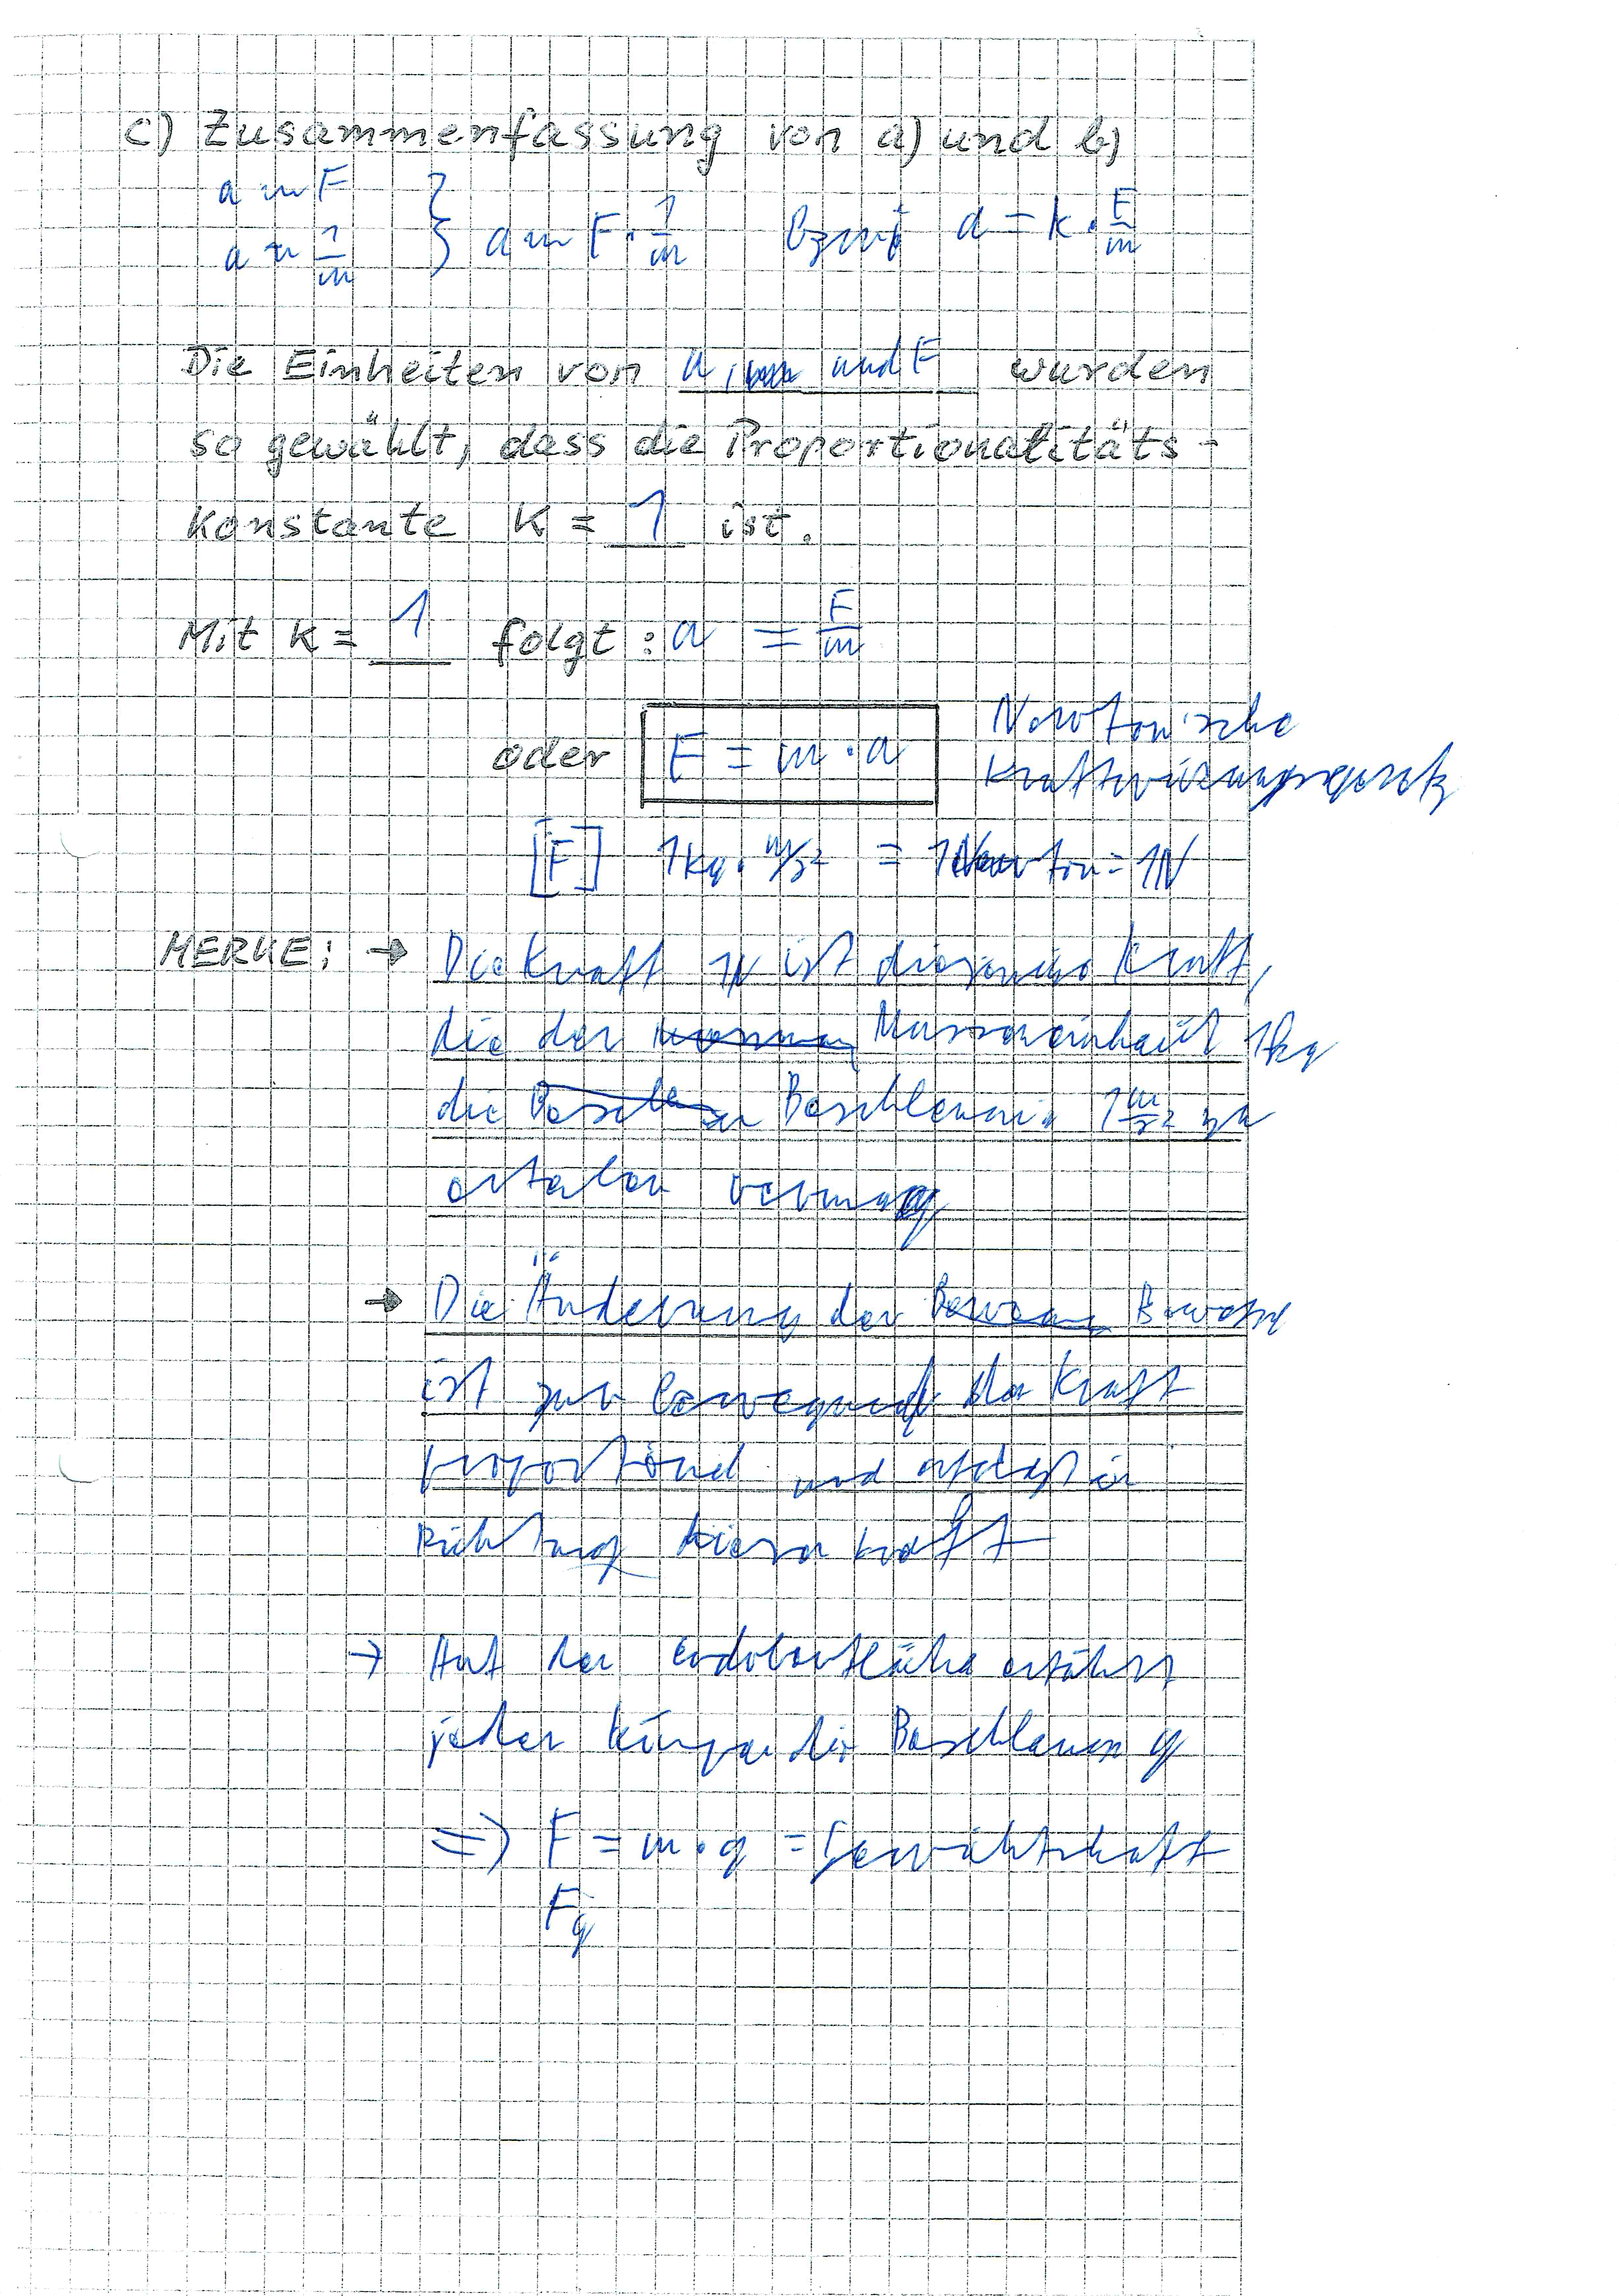 c) Zusammenfassung von a) und b)
a ~ F
a ~ 1/m } a ~ F · 1/m bzw. a = k · F/m
Die Einheiten von a, m und F wurden
so gewählt, dass die Proportionalitäts-
Konstante K = 1 ist.
Mit K = 1 folgt: a = F/m
oder F = m · a Newton'sche
Kraftwirkungsgesetz
[F] 1kg · m/s² = 1 Newton = 1N
MERKE: → Die Kraft 1N ist diejenige Kraft,
die der Masseneinheit 1kg
die Beschleunig 1 m/s² zu
erteilen vermag
→ Die Änderung der Beweg
ist zur bewegend der Kraft
proportional und erfolgt in
Richtung dieser Kraft
→ Auf der Erdoberfläche erfährt
jeder Körper die Beschleun g
=> F = m · g = Gewichtskraft
Fg